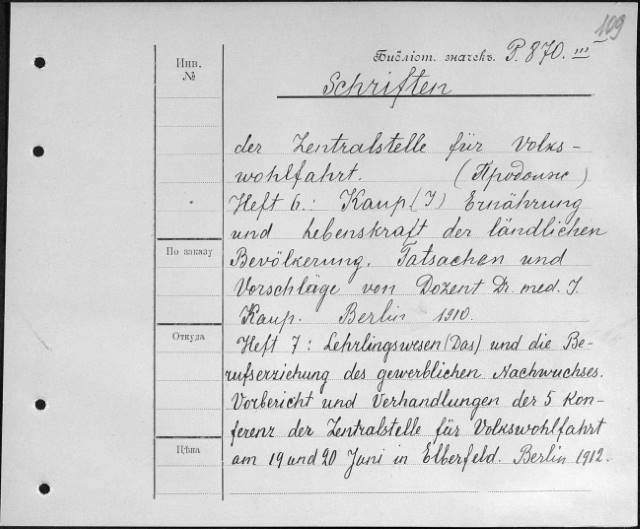 109
Инв.
№
Библіот. значекъ. P. 870. III
Schriften
der Zentralstelle für Volks-
wohlfahrt. (Продолж)
Heft 6.: Kaup (J) Ernährung
und Lebenskraft der ländlichen
По заказу
Bevölkerung. Tatsachen und
Vorschläge von Dozent Dr. med. J.
Kaup. Berlin 1910.
Откуда
Heft 7: Lehrlingswesen (Das) und die Be-
rufserziehung des gewerblichen Nachwuchses.
Vorbericht und Verhandlungen der 5 Kon-
ferenz der Zentralstelle für Volkswohlfahrt
Цѣна
am 19 und 20 Juni in Elberfeld. Berlin 1912.